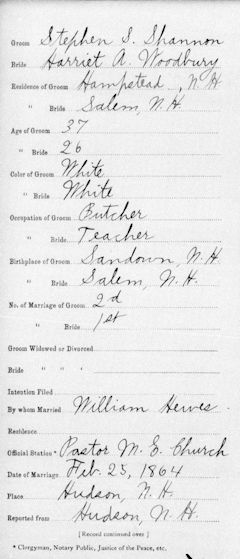 Groom Stephen S. Shannon
Bride Harriet A. Woodbury
Residence of Groom Hampstead, N. H.
" Bride Salem, N. H.
Age of Groom 37
" Bride 26
Color of Groom White
" Bride White
Occupation of Groom Butcher
" Bride Teacher
Birthplace of Groom Sandown, N. H.
" Bride Salem, N. H.
No. of Marriage of Groom 2d
" Bride 1st
Groom Widowed or Divorced
Bride " " "
Intention Filed
By whom Married William Hewes
Residence
Official Station * Pastor M. E. Church
Date of Marriage Feb. 25, 1864
Place Hudson, N. H.
Reported from Hudson, N. H.
[Record continued over]
* Clergyman, Notary Public, Justice of the Peace, etc.